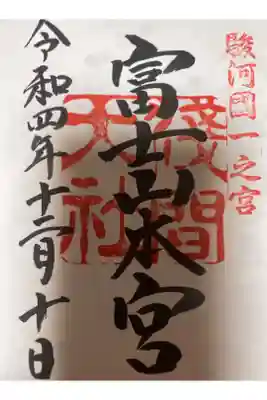 駿河国一之宮
富士山本宮
淺間
大社
令和四年十二月十日